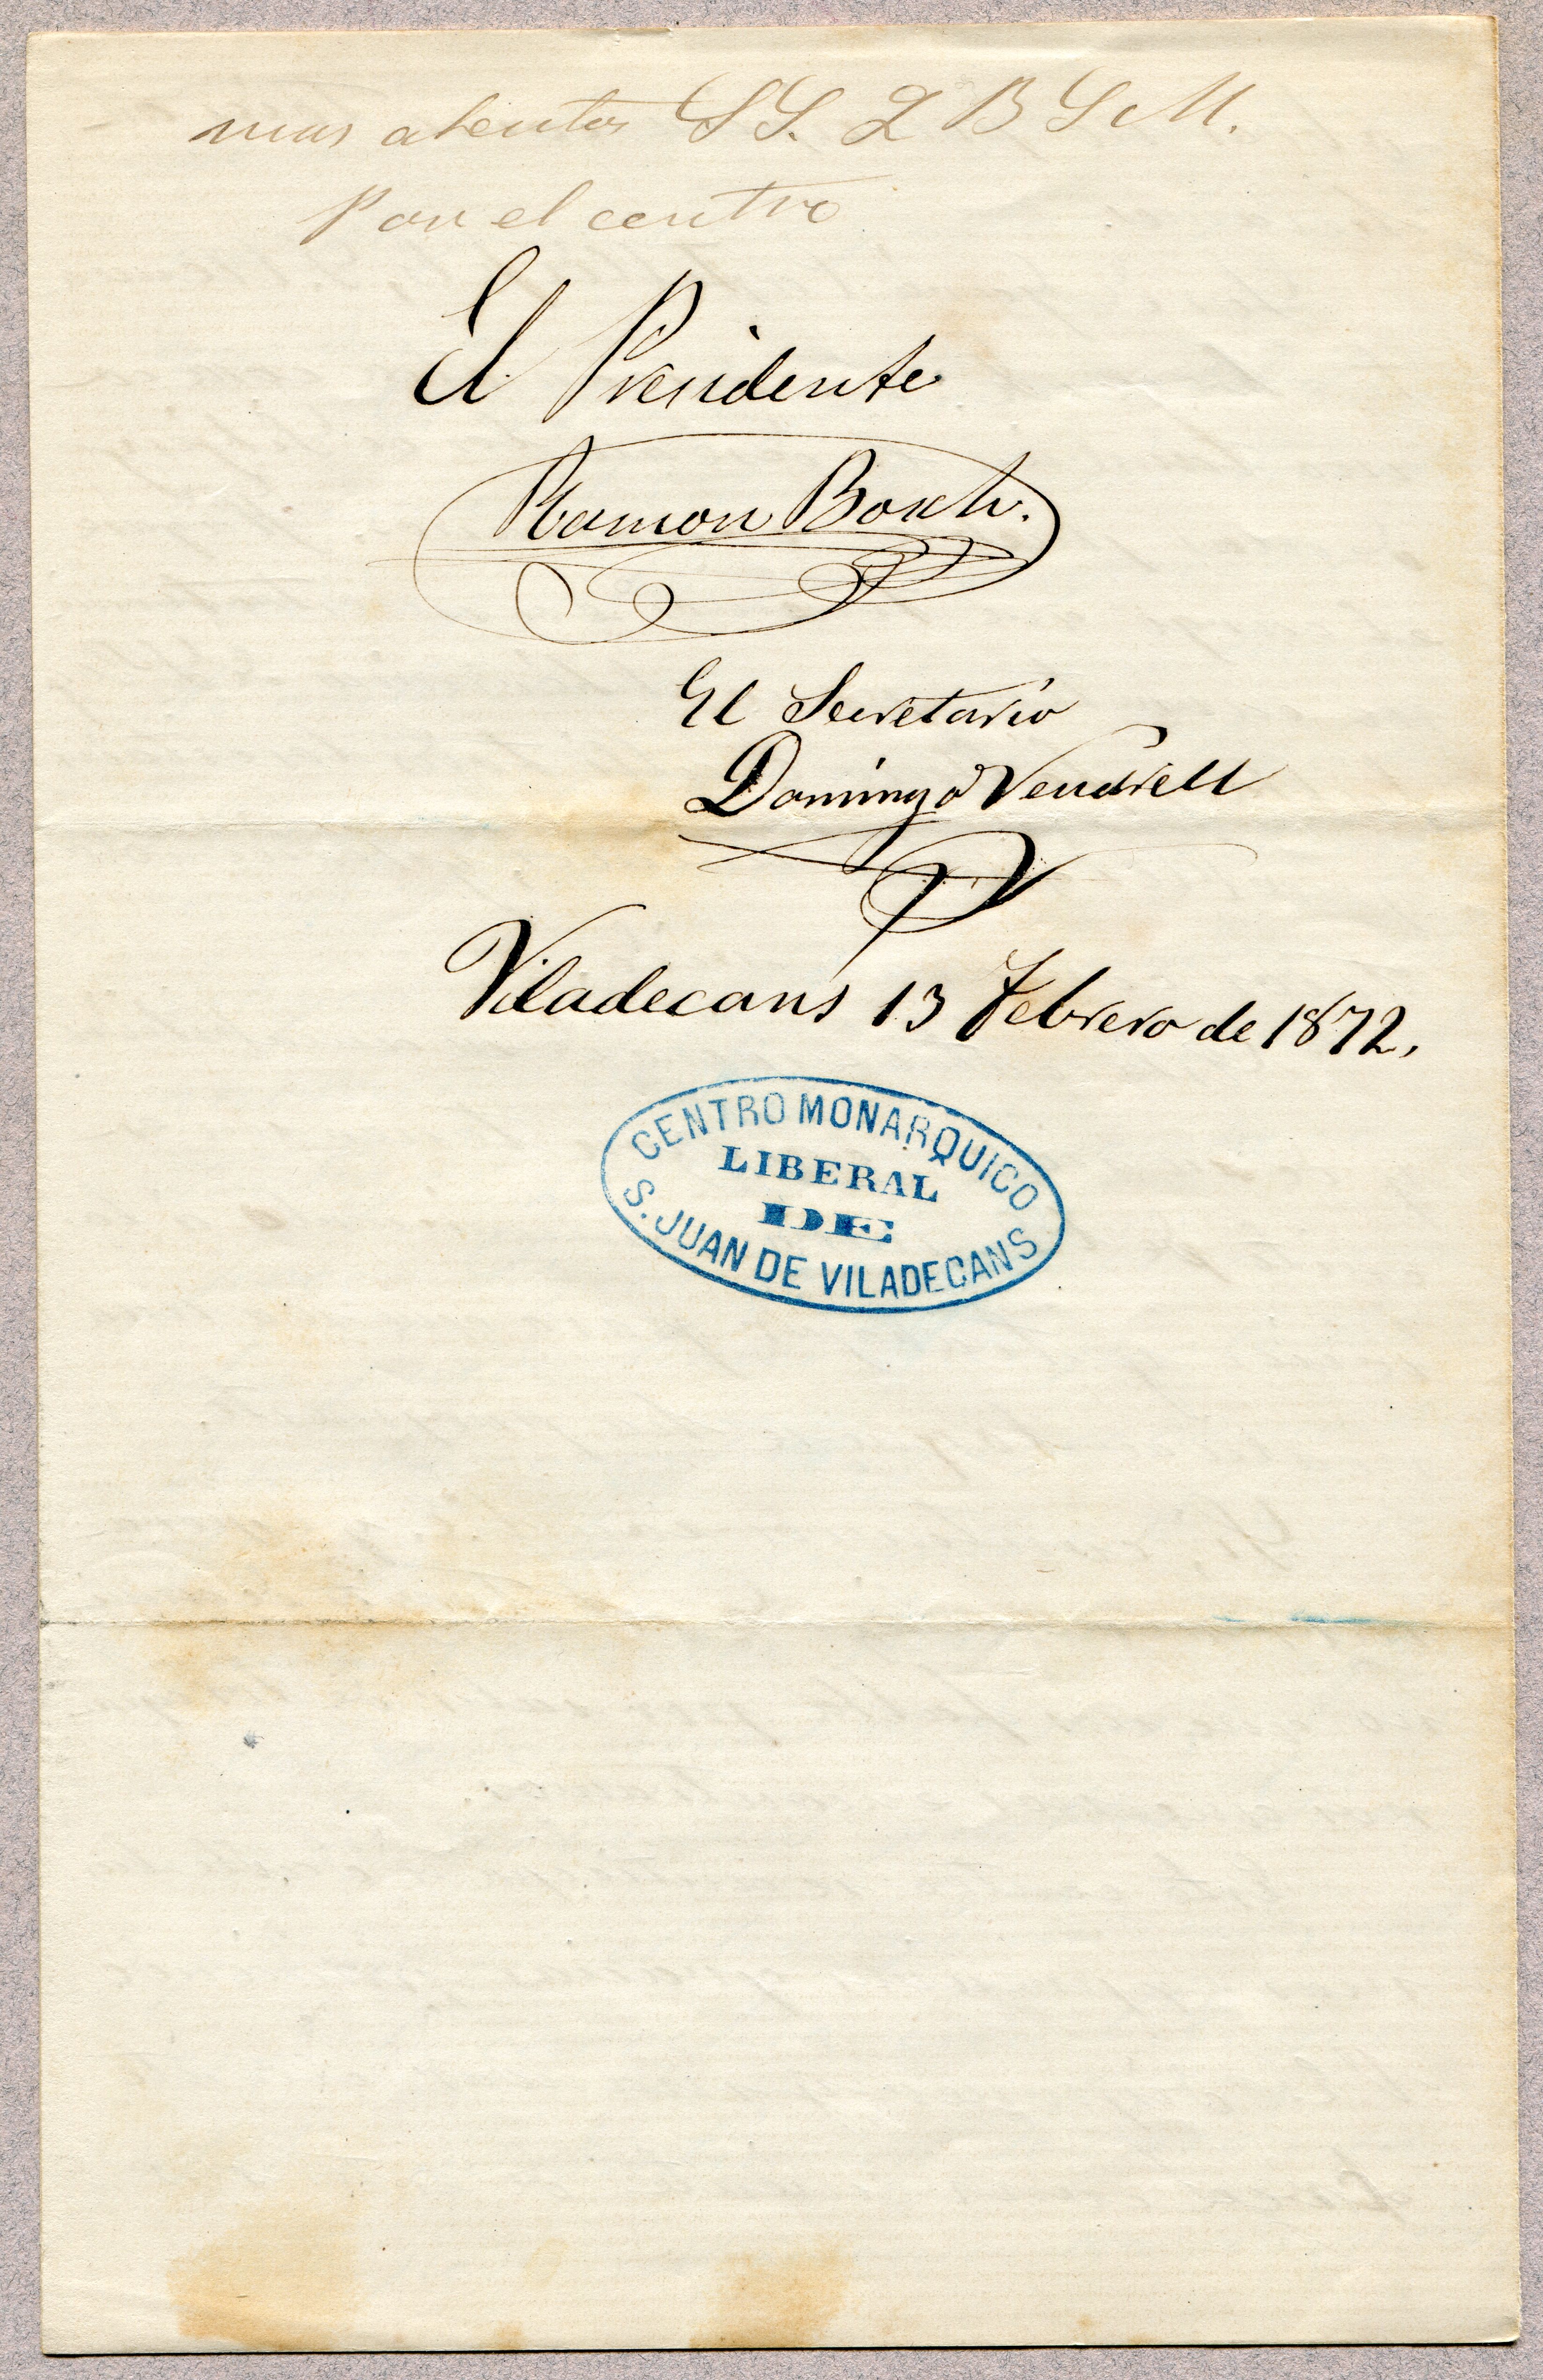 mas atentos SS. Q B S M.
Por el centro
El Presidente
Ramon Bosch.
El Secretario
Domingo Vendrell
Viladecans 13 Febrero de 1872.
CENTRO MONARQUICO
LIBERAL
DE
S. JUAN DE VILADECANS